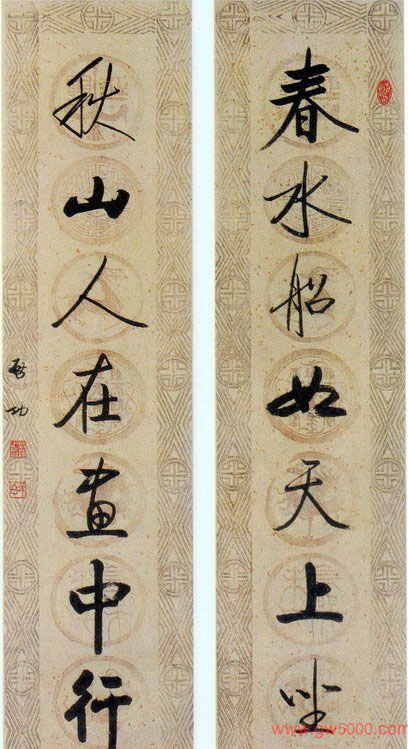 春水船如天上坐
秋山人在画中行
启功
www.gw5000.com